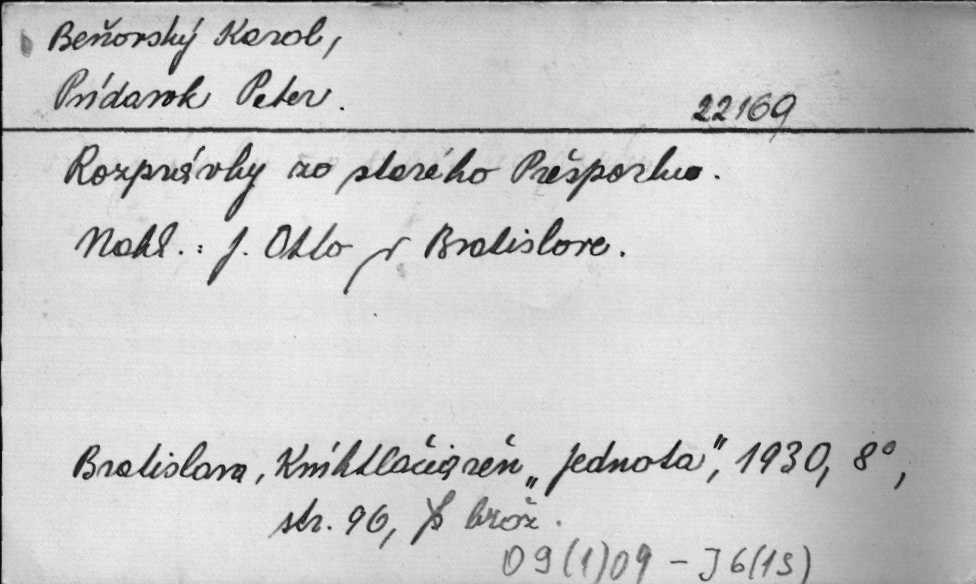 Beňovský Karol,
Prídavok Peter.
22169
Rozprávky zo starého Prešporku.
Nakl.: J. Otto v Bratislave.
Bratislava, Kníhtlačiareň „Jednota", 1930, 8°,
str. 96, brož.
09(1)09 - J6(1S)